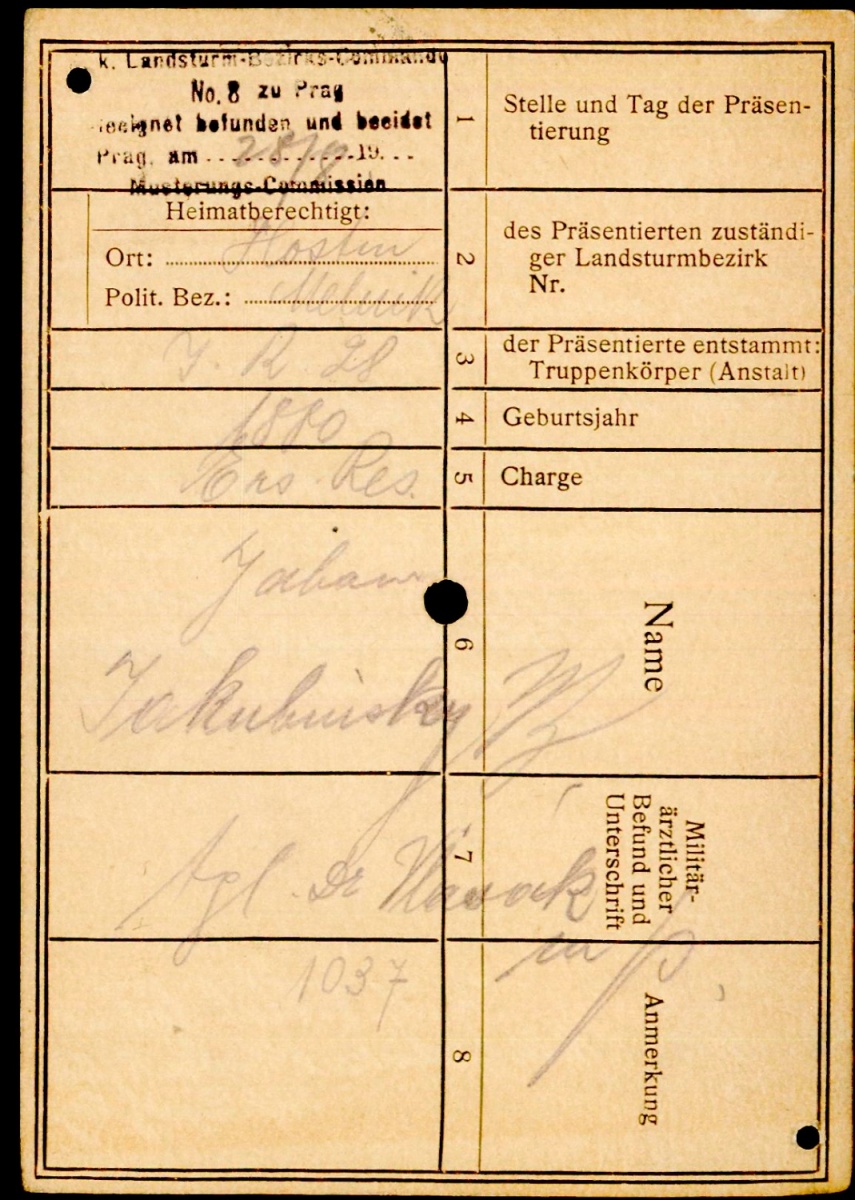 k. Landsturm-Bezirks-Commando
No. 8 zu Prag
geeignet befunden und beeidet
Prag, am 28/ 19
Musterungs-Commission
1
Stelle und Tag der Präsen-
tierung
Heimatberechtigt:
Ort: Hostin
Polit. Bez.: Melnik
2
des Präsentierten zuständi-
ger Landsturmbezirk
Nr.
J. R. 28
3
der Präsentierte entstammt:
Truppenkörper (Anstalt)
1880
4
Geburtsjahr
Ers. Res.
5
Charge
Johann
Jakubinsky
6
Name
tgl. Dr
7
Militär-
ärztlicher
Befund und
Unterschrift
1037
8
Anmerkung